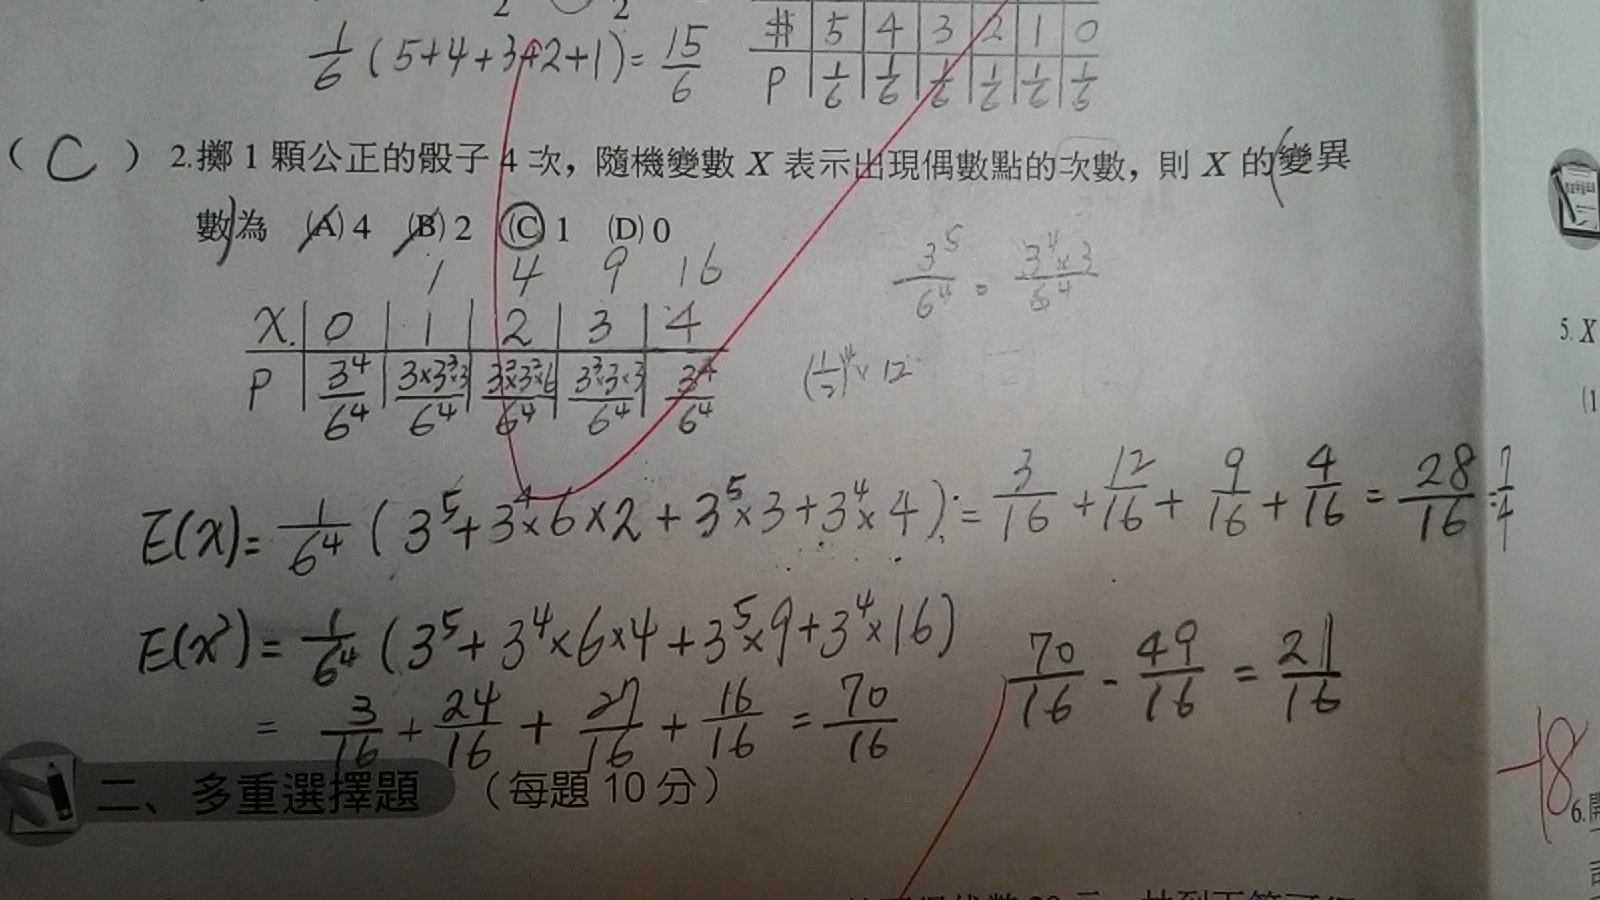 2 2
1/6 (5+4+3+2+1) = 15/6
# 5 4 3 2 1 0
P 1/6 1/6 1/6 1/6 1/6 1/6
( C ) 2.擲 1 顆公正的骰子 4 次，隨機變數 X 表示出現偶數點的次數，則 X 的(變異
數)為 (A) 4 (B) 2 (C) 1 (D) 0
1 4 9 16
X. 0 1 2 3 4
P 3⁴/6⁴ 3×3³×3/6⁴ 3²×3²×6/6⁴ 3³×3×3/6⁴ 3⁴/6⁴
3⁵/6⁴ = 3⁴×3/6⁴
(1/2)⁴× 12
E(X) = 1/6⁴ ( 3⁵ + 3⁴×6×2 + 3⁵×3 + 3⁴×4 ) = 3/16 + 12/16 + 9/16 + 4/16 = 28/16 = 7/4
E(X²) = 1/6⁴ (3⁵ + 3⁴×6×4 + 3⁵×9 + 3⁴×16)
= 3/16 + 24/16 + 27/16 + 16/16 = 70/16
70/16 - 49/16 = 21/16
二、多重選擇題 （每題 10 分）
5. X
(1
-18
6.